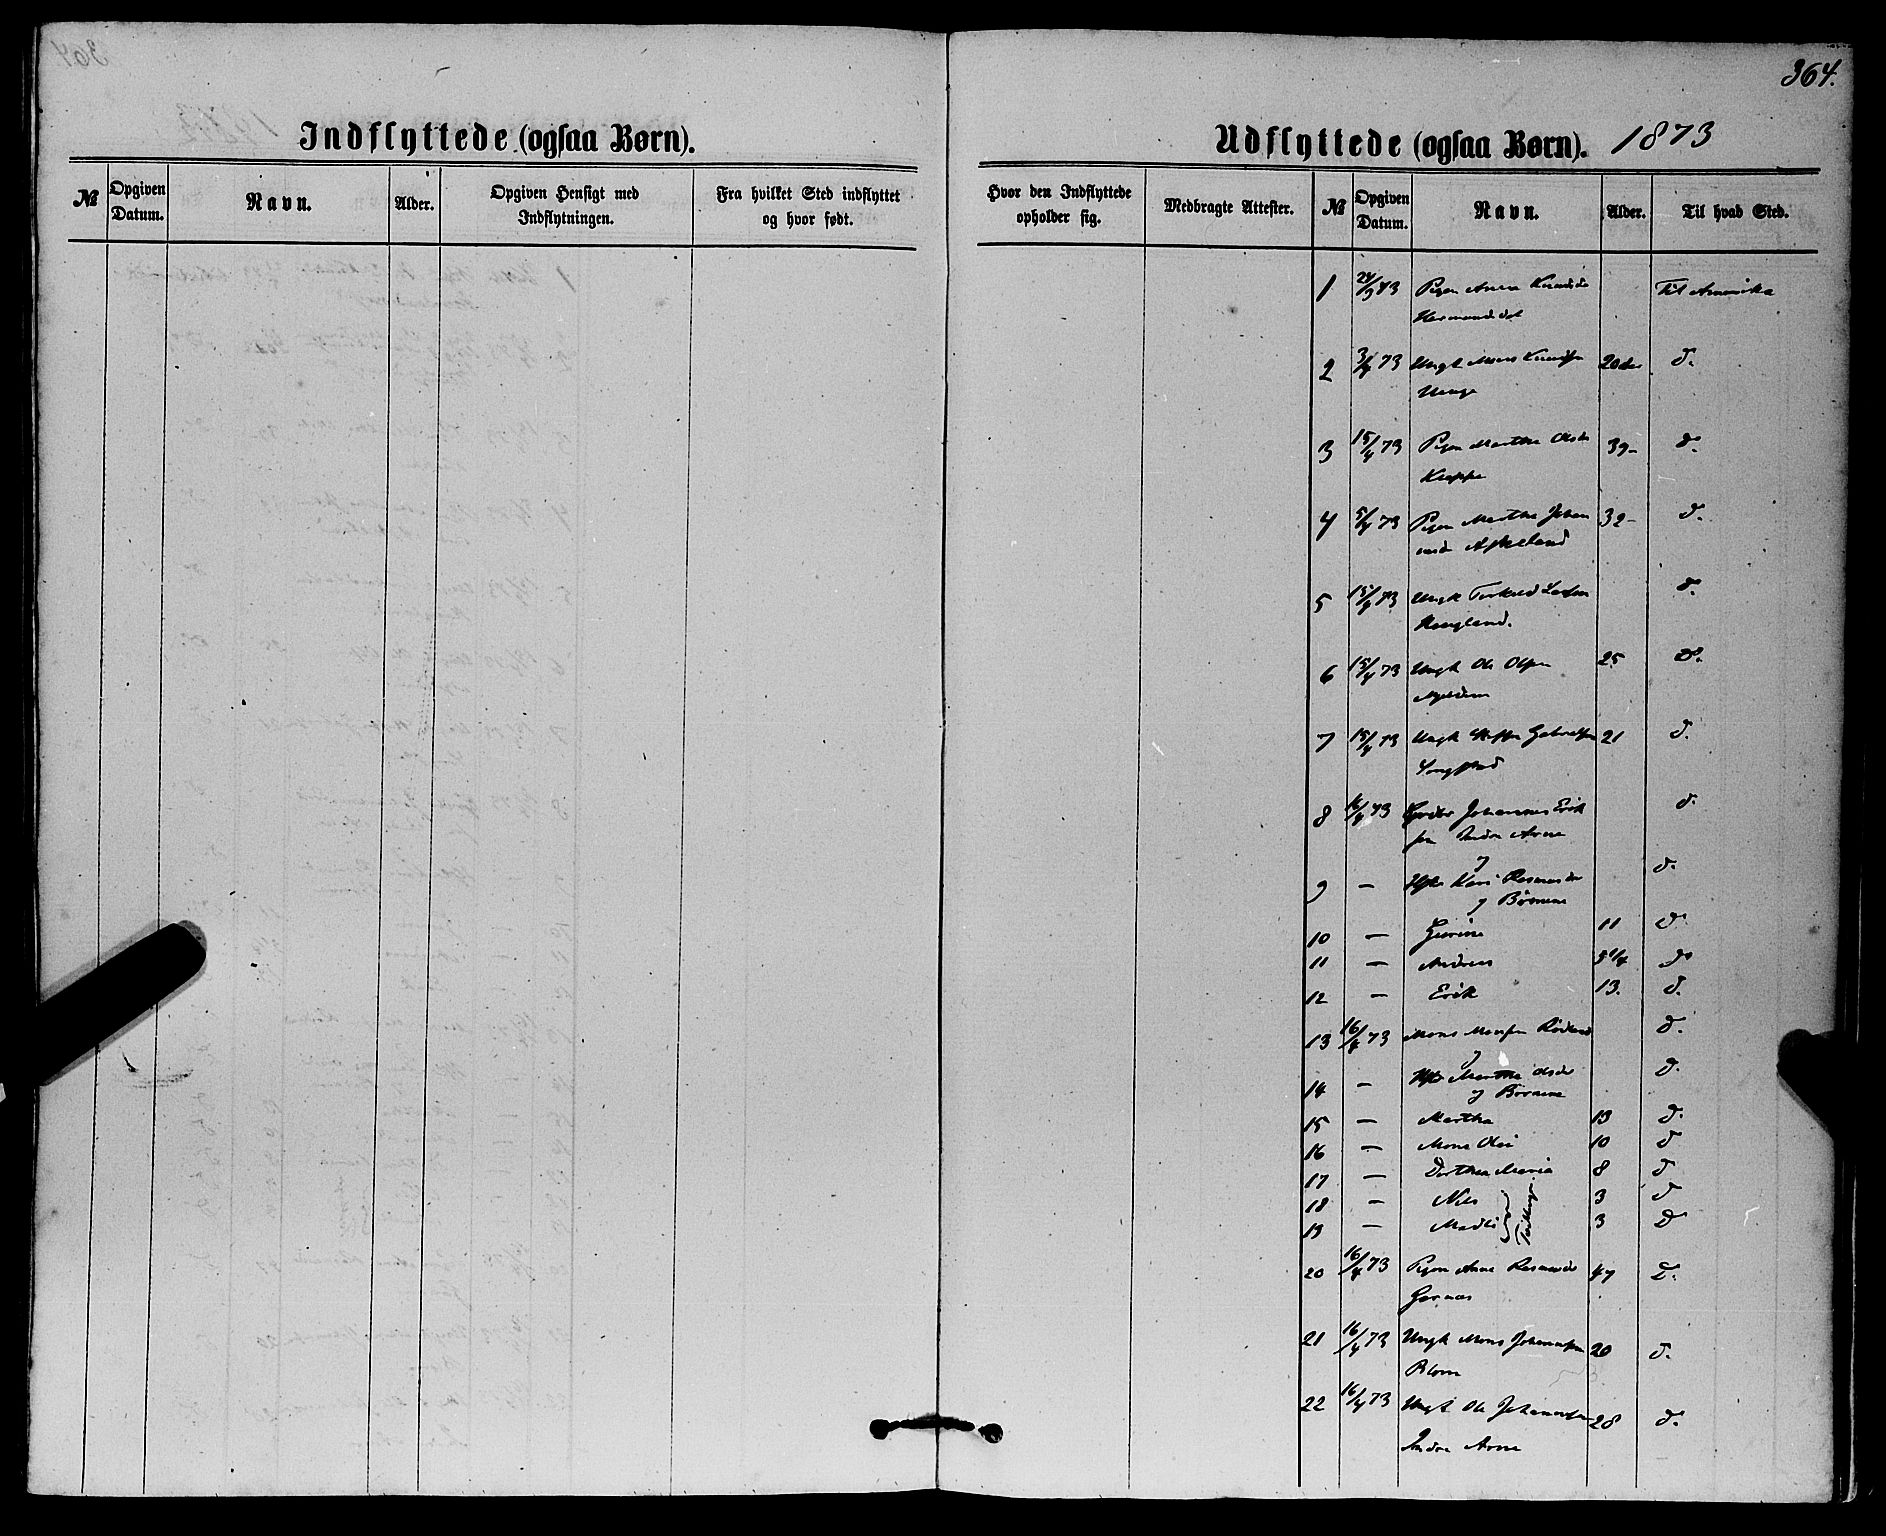 364.
Indflyttede (ogsaa Børn).
№
Opgiven Datum.
Navn.
Alder.
Opgiven Hensigt med Indflytningen.
Fra hvilket Sted indflyttet og hvor født.
Udflyttede (ogsaa Børn). 1873
Hvor den Indflyttede opholder sig.
Medbragte Attester.
№
Opgiven Datum.
Navn.
Alder.
Til hvad Sted.
1 73 Pigen Anna Til Amerika
2 3/4 73 Ungk Mons 20 d.
3 15/4 73 Pigen Martha Olsdr 39- d.
4 5/4 73 Pigen Martha Johan 32- d.
Askeland
5 15/4 73 Ungk Larsen d.
Haugland.
6 15/4 73 Ungk Ole Olsen 25 d.
7 15/4 73 Ungk Gabrielsen 21 d.
8 16/4 73 Johannes Erik d.
sen Indre Arne
og
9 — Kari Rasmusdr d.
og Børnene
10 — 11 d.
11 — Andreas d.
12 — Erik 13. d.
13 16/4 73 Mons Monsen d.
og
14 — Martha Olsdr d.
og Børnene
15 — Martha 13 d.
16 — Mons Olai 10 d
17 — Dorthea Maria 8 d
18 — Nils 3 d
19 — Madli 3 d
Tvillinger
20 16/4 73 Pigen Anna Rasmusdr 47 d.
Garnæs
21 16/4 73 Ungk Mons Johannesen 20 d.
Blom
22 16/4 73 Ungk Ole Johannesen 28 d.
Indre Arne